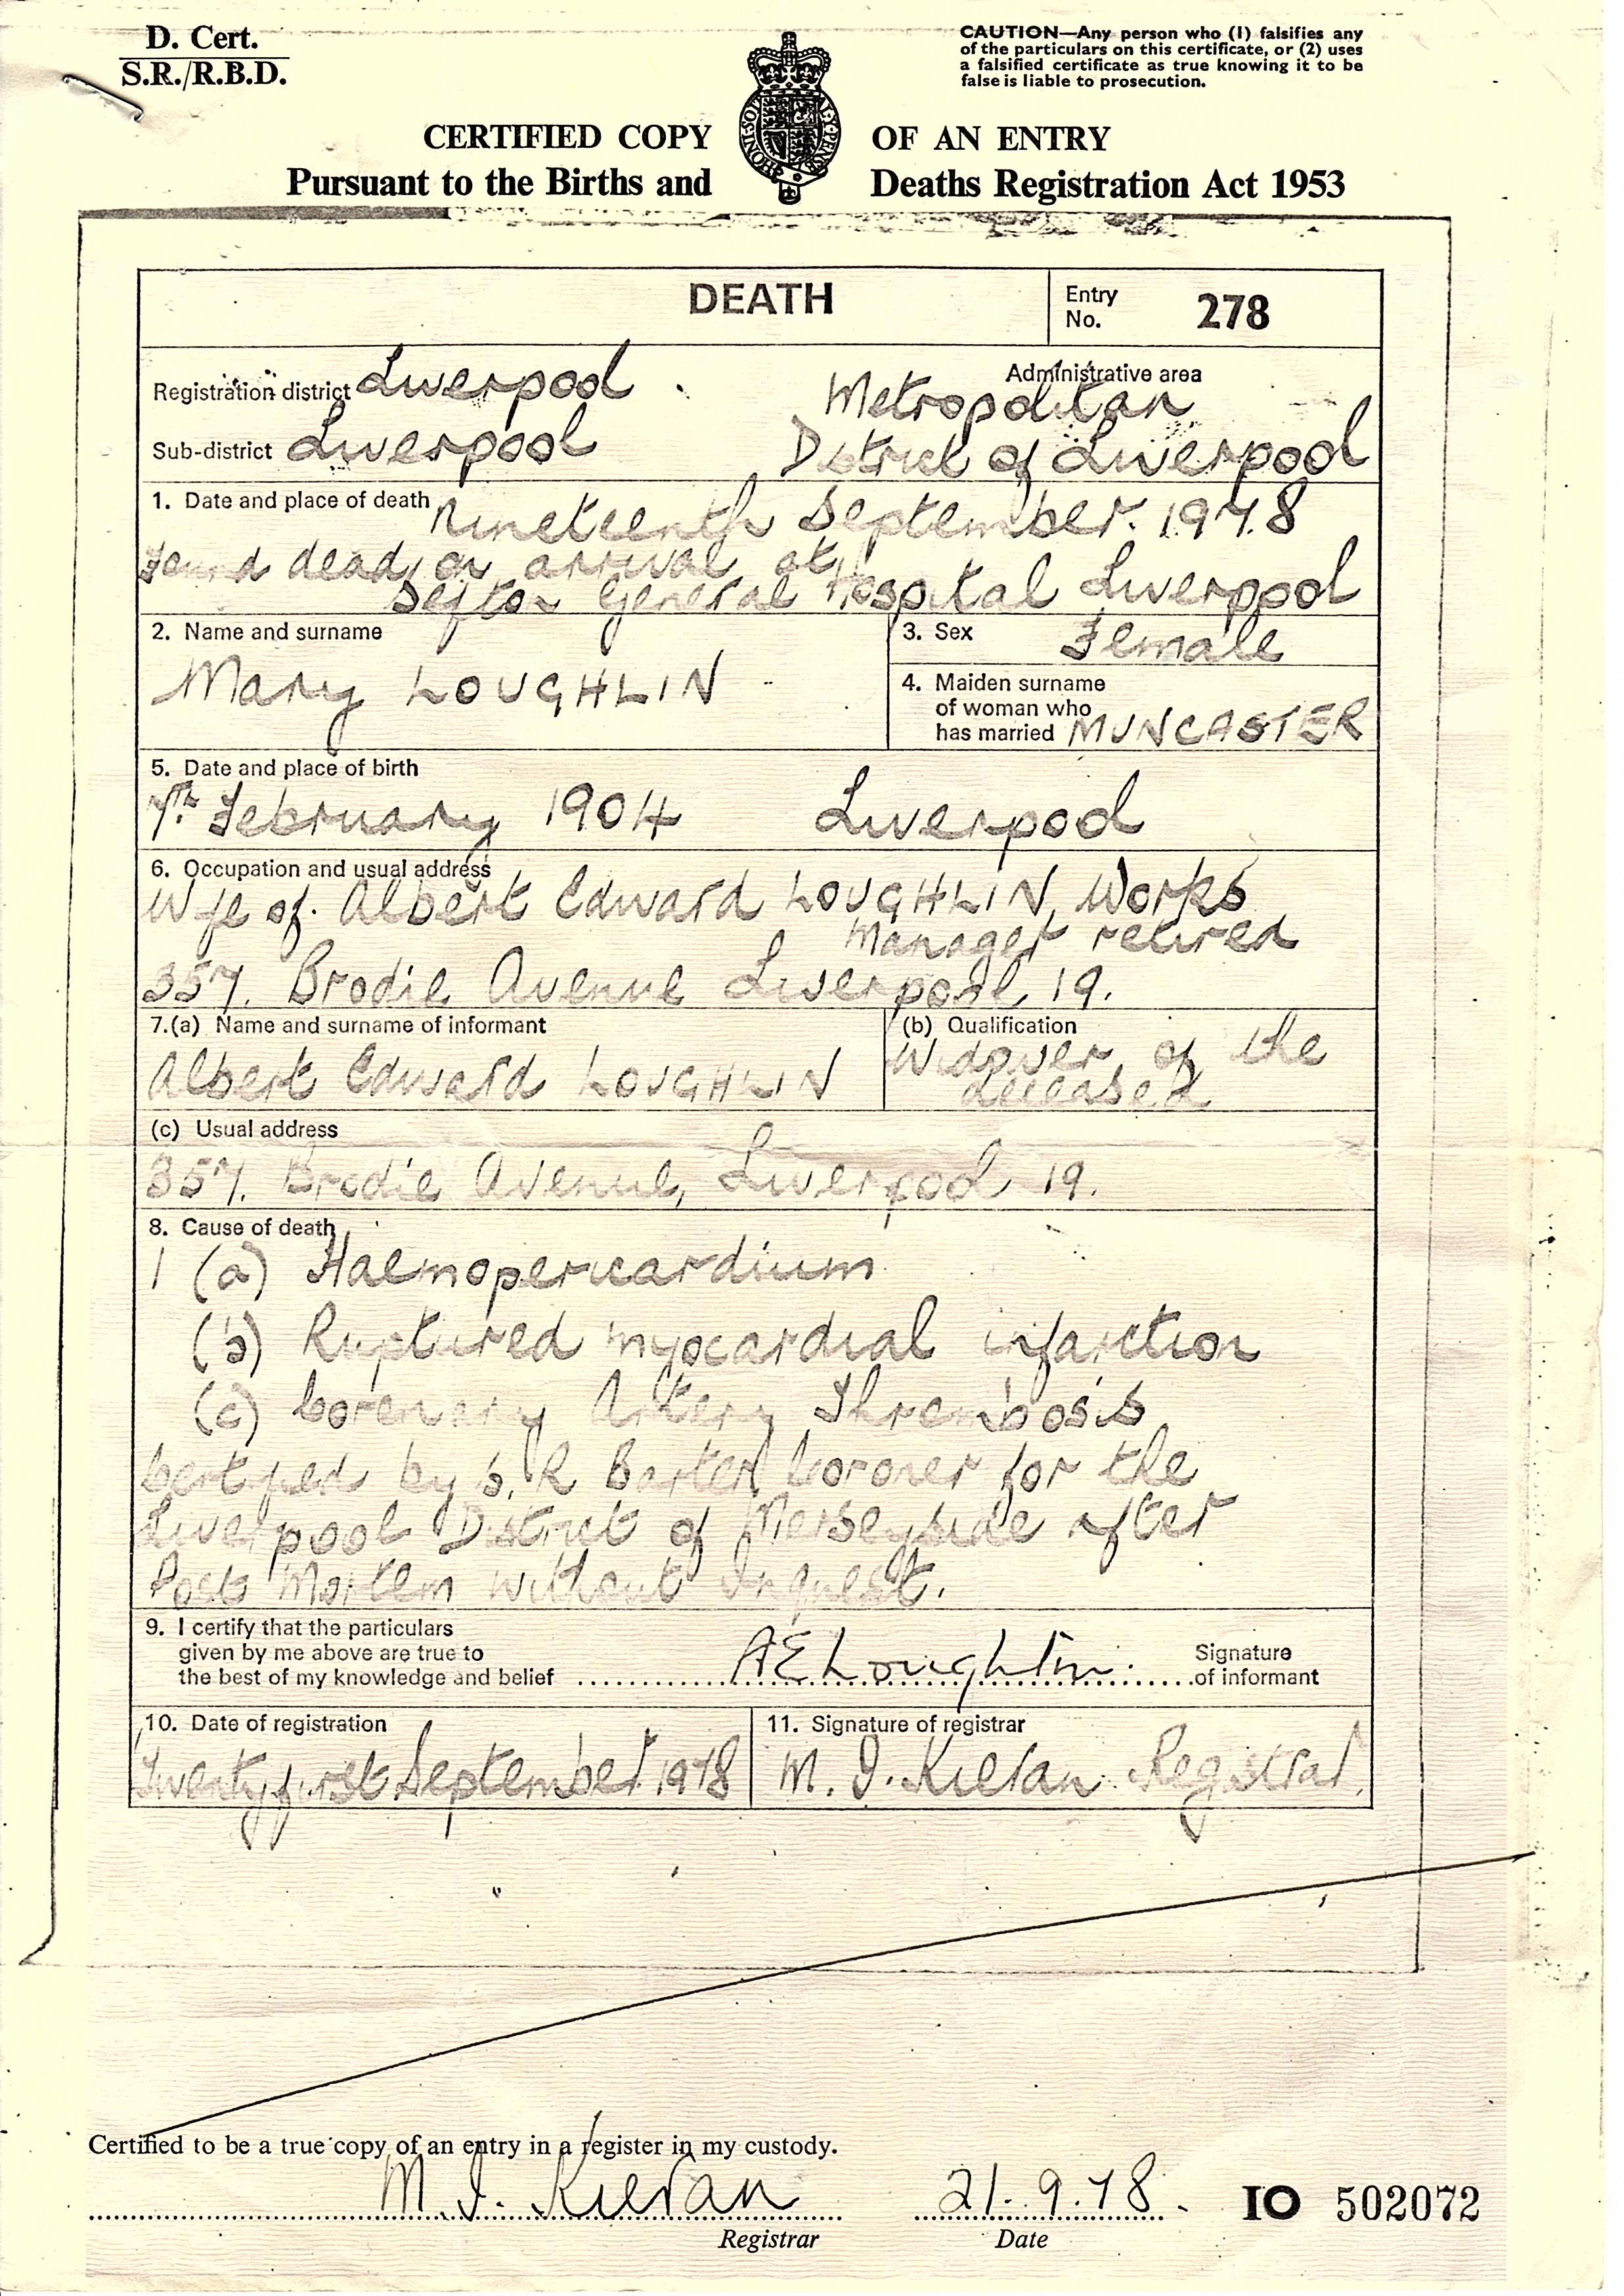 D. Cert.
S.R./R.B.D.
CAUTION—Any person who (1) falsifies any
of the particulars on this certificate, or (2) uses
a falsified certificate as true knowing it to be
false is liable to prosecution.
CERTIFIED COPY OF AN ENTRY
Pursuant to the Births and Deaths Registration Act 1953
DEATH
Entry No. 278
Registration district Liverpool
Administrative area
Metropolitan
Sub-district Liverpool
District of Liverpool
1. Date and place of death Nineteenth September 1978
Found dead on arrival at
Sefton General Hospital Liverpool
2. Name and surname
Mary LOUGHLIN
3. Sex Female
4. Maiden surname
of woman who
has married MUNCASTER
5. Date and place of birth
7th February 1904 Liverpool
6. Occupation and usual address
Wife of Albert Edward LOUGHLIN, Works
Manager retired
357. Brodie Avenue Liverpool 19.
7.(a) Name and surname of informant
Albert Edward LOUGHLIN
(b) Qualification
Widower of the
deceased
(c) Usual address
357. Brodie Avenue, Liverpool 19.
8. Cause of death
1 (a) Haemopericardium
(b) Ruptured myocardial infarction
(c) Coronary Artery Thrombosis
Certified by S. R Barter Coroner for the
Liverpool District of Merseyside after
Post Mortem without Inquest.
9. I certify that the particulars
given by me above are true to
the best of my knowledge and belief
A E Loughlin
Signature
of informant
10. Date of registration
Twenty first September 1978
11. Signature of registrar
M. I. Kieran Registrar.
Certified to be a true copy of an entry in a register in my custody.
M. I. Kieran 21. 9. 78. IO 502072
Registrar Date